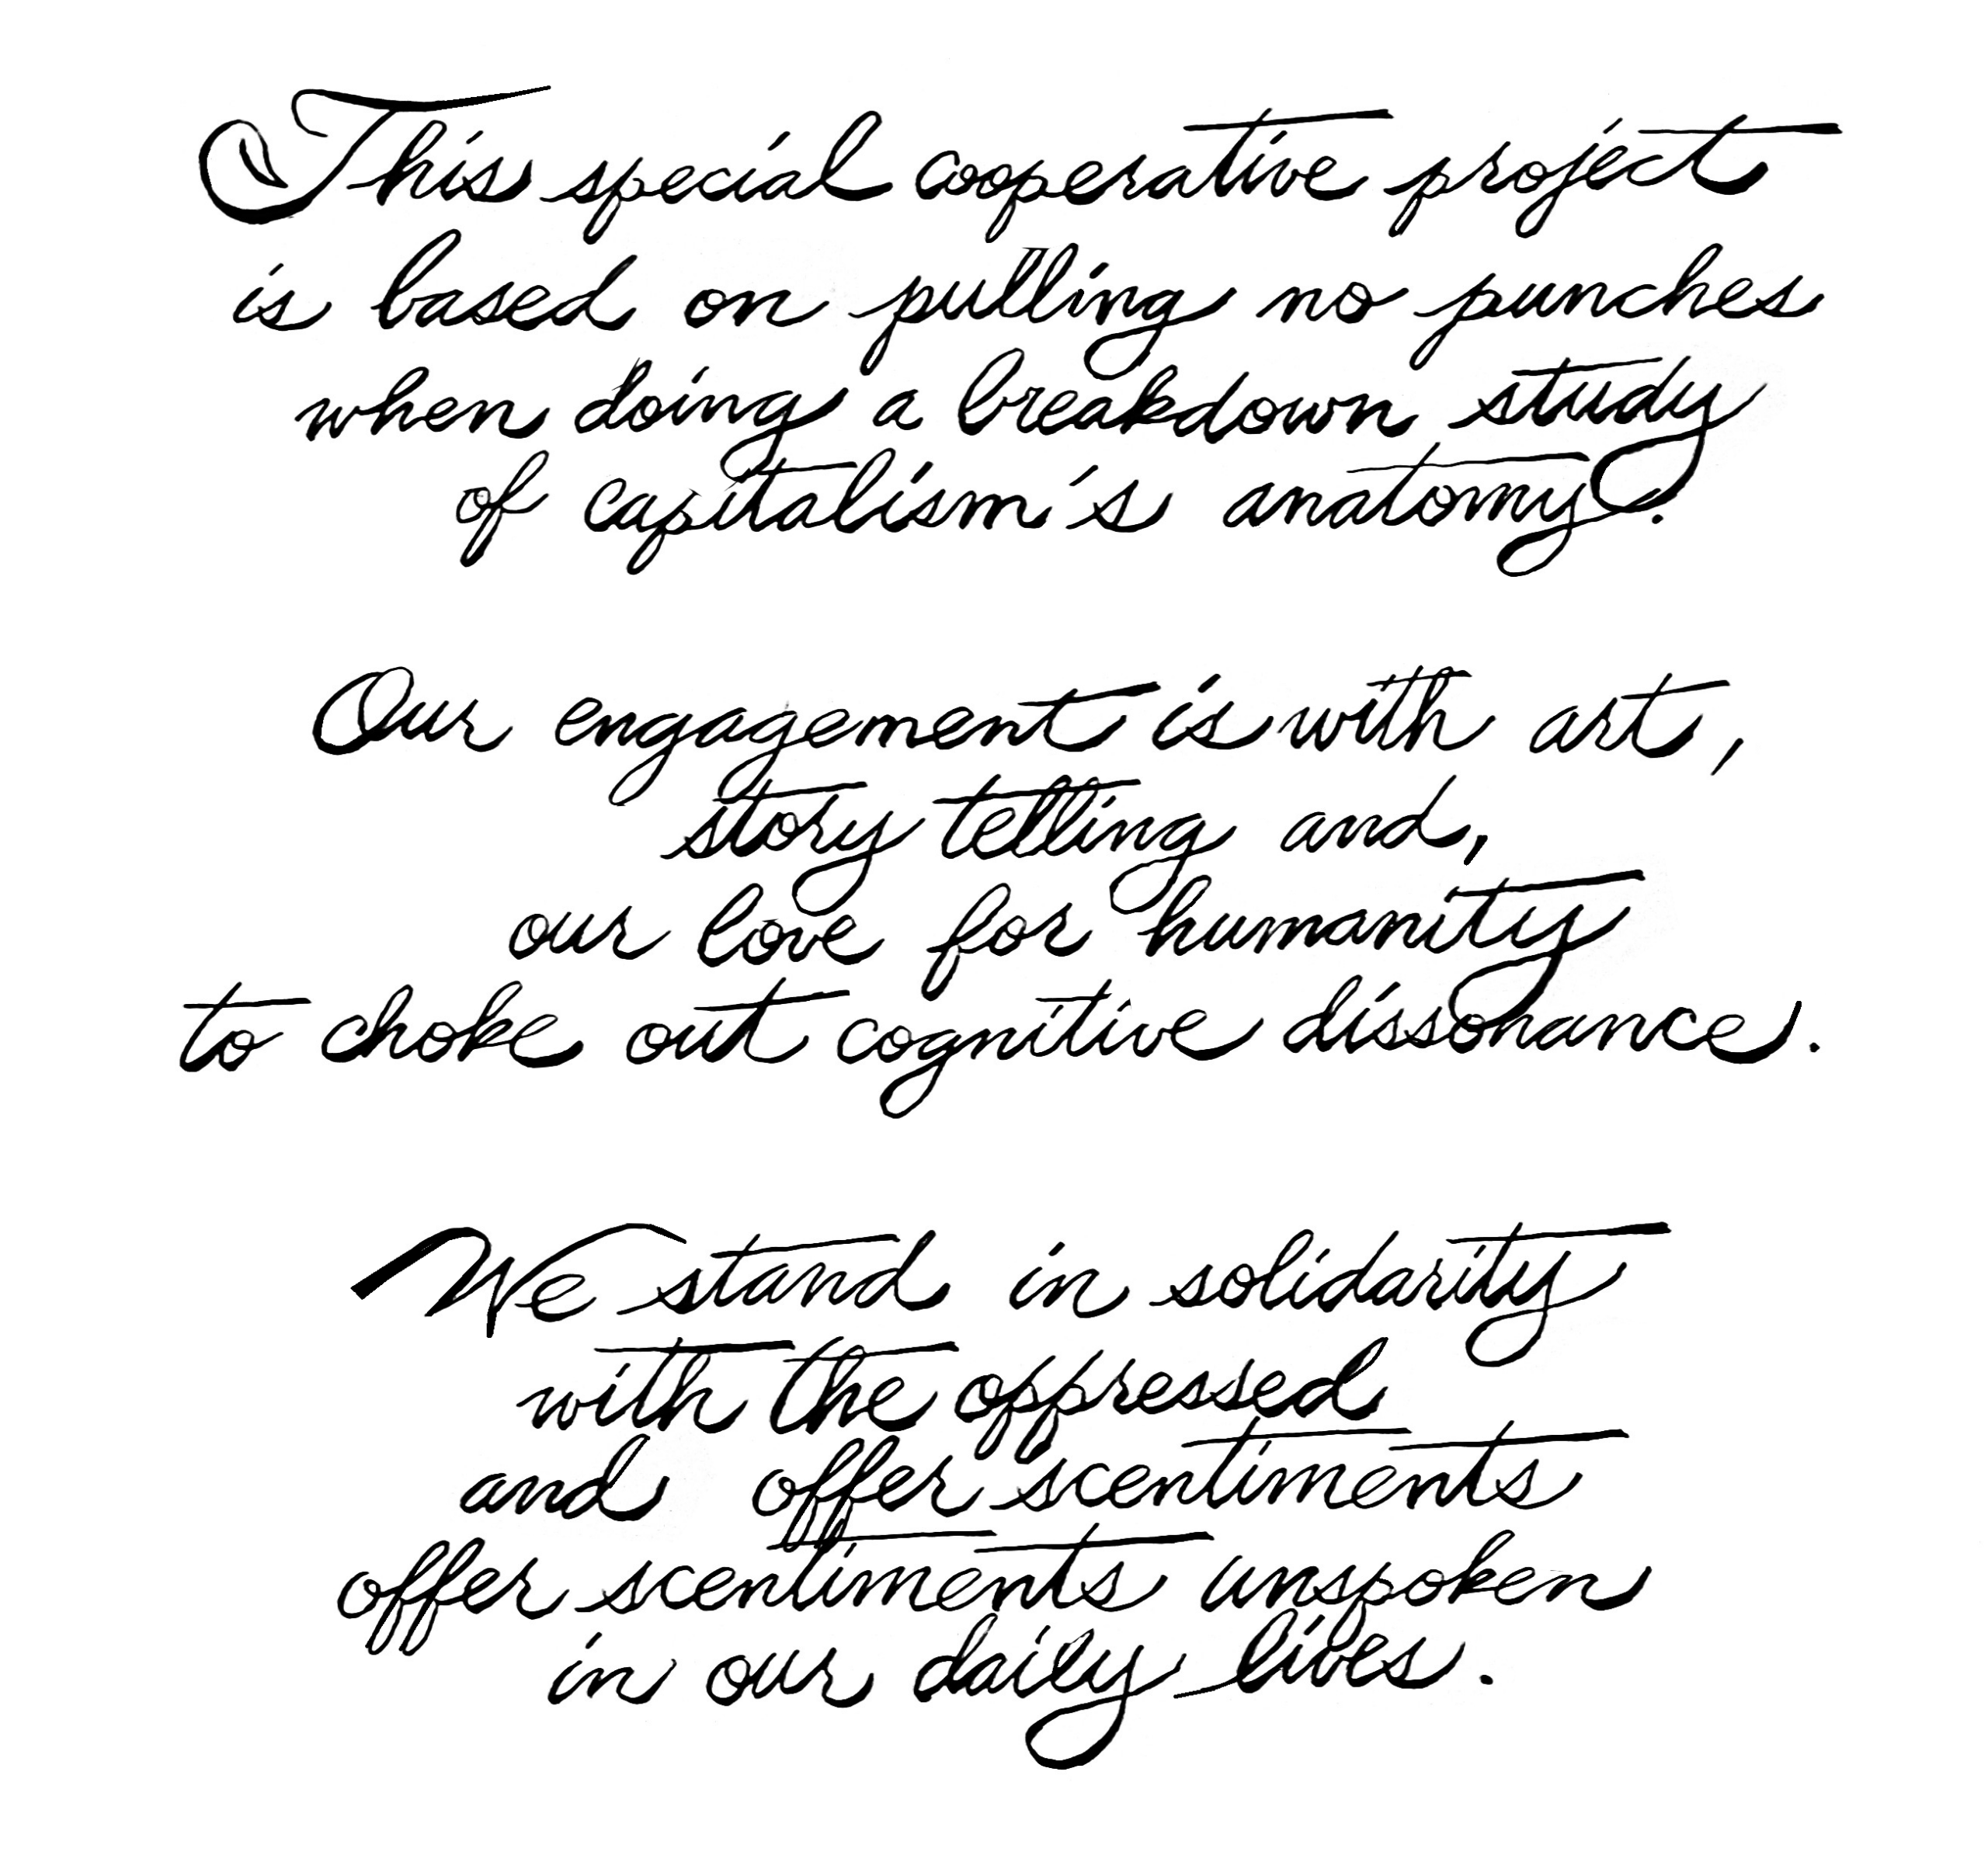 This special cooperative project
is based on pulling no punches
when doing a breakdown study
of capitalism's anatomy.
Our engagement is with art,
story telling and,
our love for humanity
to choke out cognitive dissonance.
We stand in solidarity
with the oppressed
and offer scentiments
offer scentiments unspoken
in our daily lives.